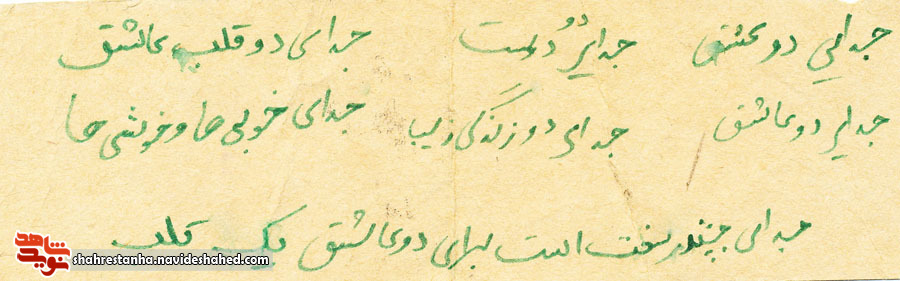 جدایی دو عشق جدایی دو دست جدای دو قلب عاشق
جدایی دو عاشق جدای دو زندگی زیبا جدای خوبی ها و خوشی ها
جدای چقدر سخت است برای دو عاشق یک قلب
نوید شاهد
shahrestanha.navideshahed.com